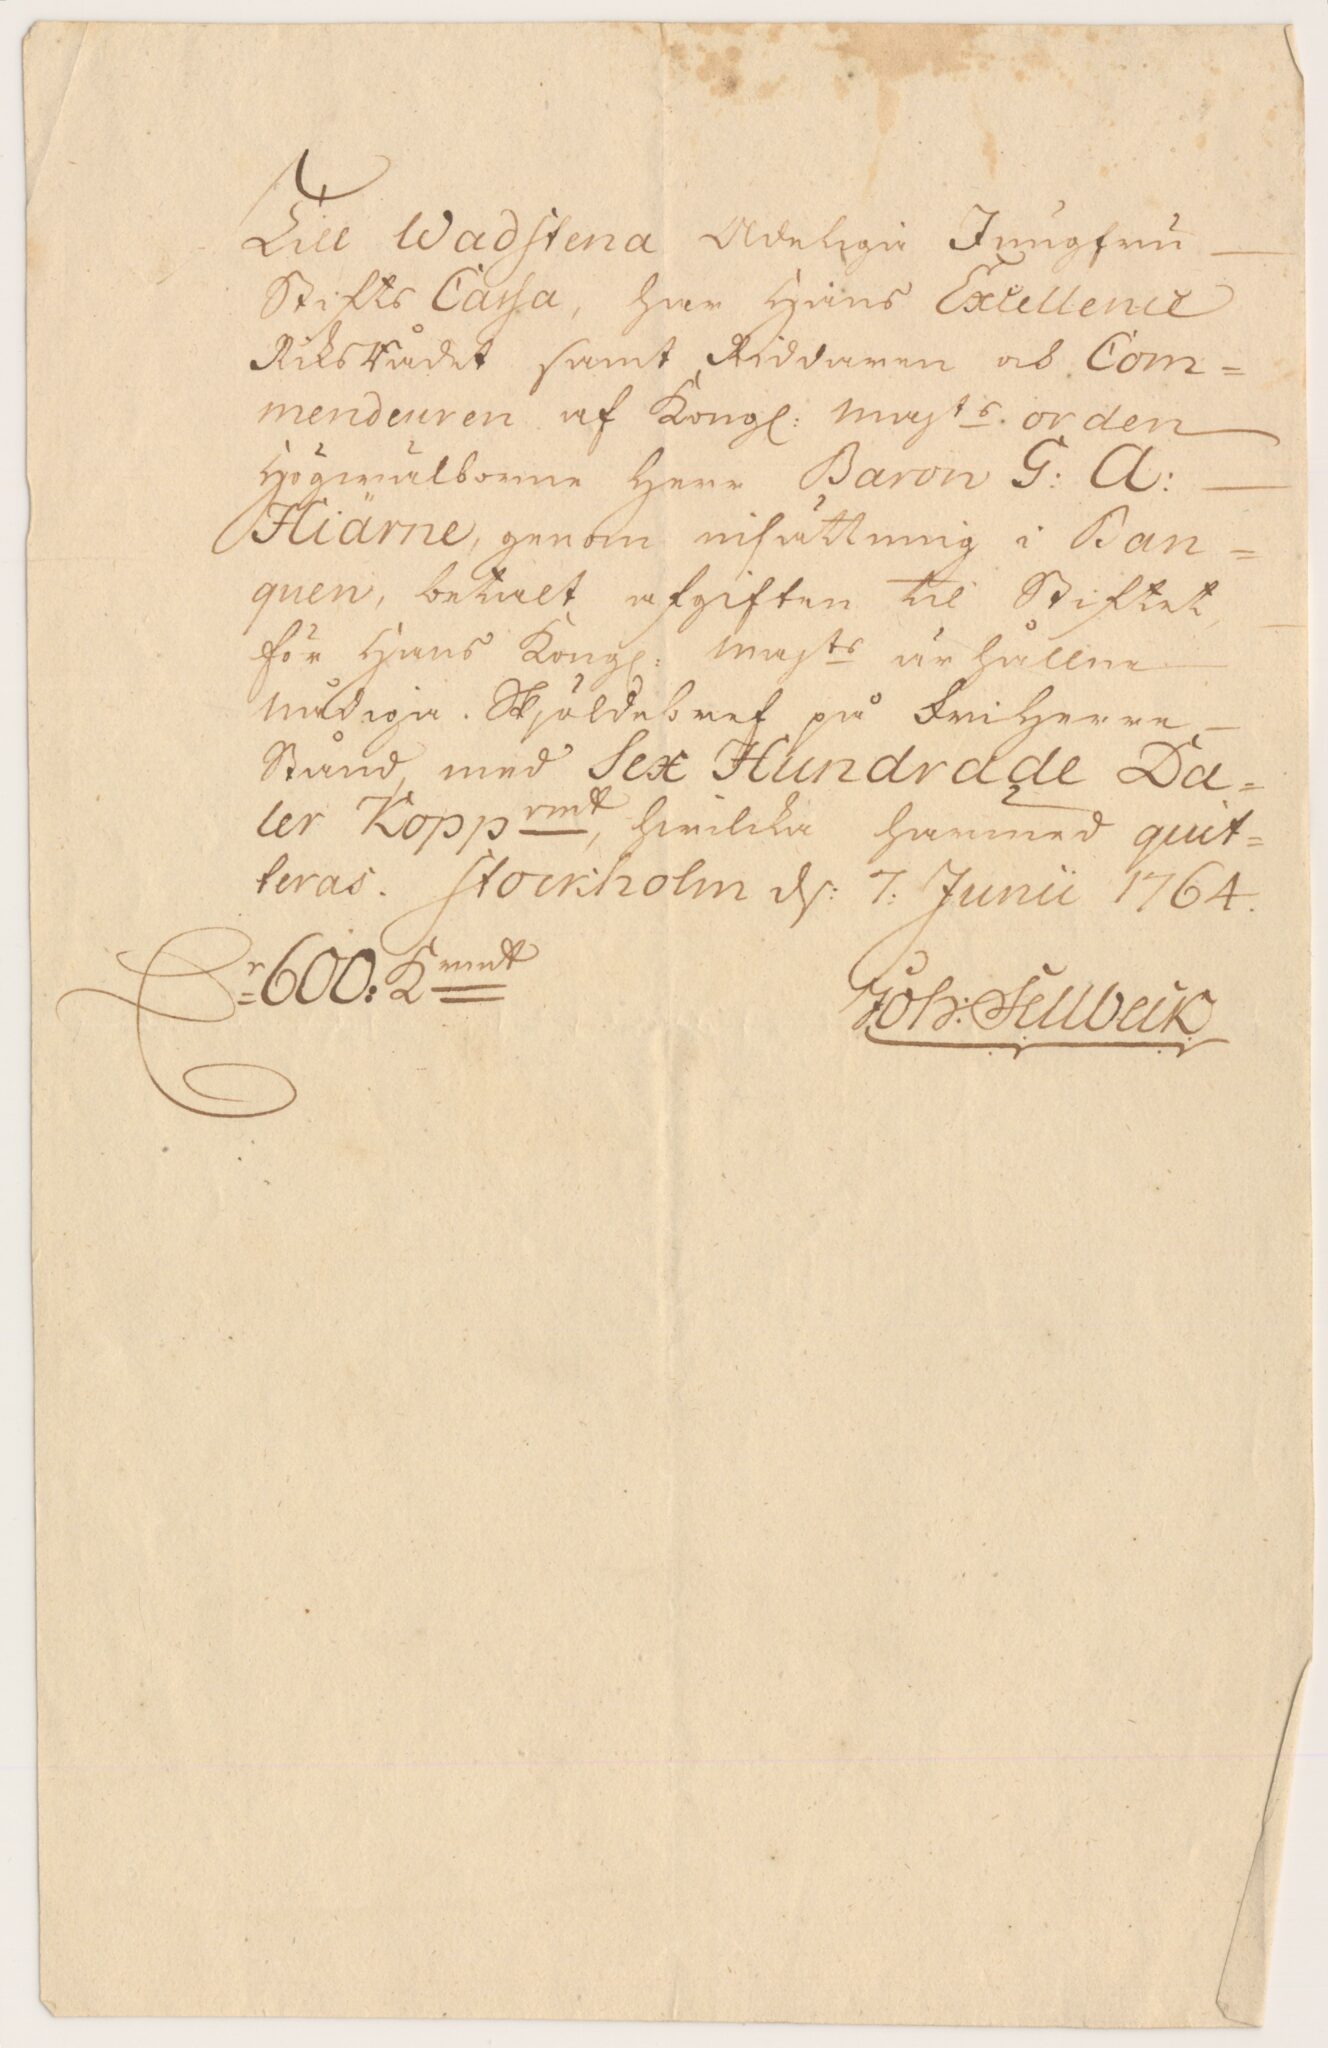 Till Wadstena Adeliga Jungfru
Stifts Cassa, har Hans Excellence
RiksRådet samt Riddaren ock Com=
mendeuren af Kongl: Maj:ts orden
Högwälborne Herr Baron G: A:
Hiärne, genom insättning i Ban=
quen, betalt afgiften til Stiftet,
för Hans Kongl: Maj:ts ärhållne
nådiga Skjöldebref på FriHerre
Stånd, med Sex Hundrade Da=
ler Koppmt, hwilcka härmed quit=
teras. Stockholm d: 7: Junii 1764.
600: Kmt
Joh: Sellbeck